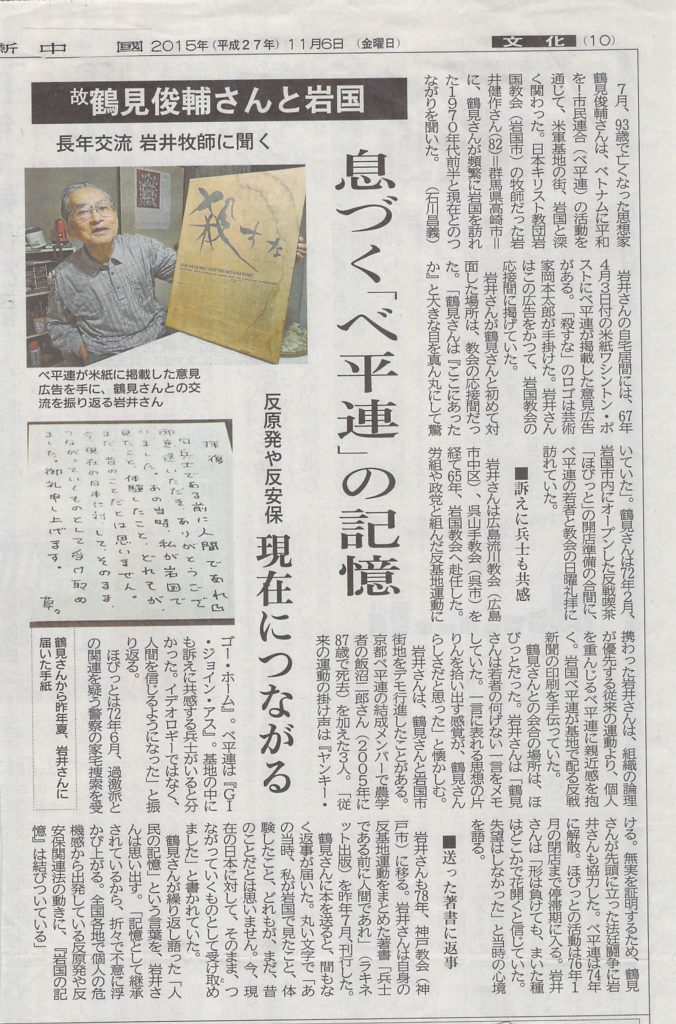 新中國 2015年(平成27年)11月6日 (金曜日) 文化 (10)
故鶴見俊輔さんと岩国
長年交流 岩井牧師に聞く
息づく「ベ平連」の記憶
反原発や反安保 現在につながる
殺すな
ベ平連が米紙に掲載した意見
広告を手に、鶴見さんとの交
流を振り返る岩井さん
7月、93歳で亡くなった思想家
鶴見俊輔さんは、ベトナムに平和
を!市民連合(ベ平連)の活動を
通じて、米軍基地の街、岩国と深
く関わった。日本キリスト教団岩
国教会(岩国市)の牧師だった岩
井健作さん(82)=群馬県高崎市=
に、鶴見さんが頻繁に岩国を訪れ
た1970年代前半と現在とのつ
ながりを聞いた。 (石川昌義)
岩井さんの自宅居間には、67年
4月3日付の米紙ワシントン・ポ
ストにベ平連が掲載した意見広告
がある。「殺すな」のロゴは芸術
家岡本太郎が手掛けた。岩井さん
はこの広告をかつて、岩国教会の
応接間に掲げていた。
岩井さんが鶴見さんと初めて対
面した場所は、教会の応接間だっ
た。「鶴見さんは『ここにあった
か』と大きな目を真ん丸にして驚
いていた」。鶴見さんは72年2月、
岩国市内にオープンした反戦喫茶
「ほびっと」の開店準備の合間に、
ベ平連の若者と教会の日曜礼拝に
訪れていた。
■訴えに兵士も共感
岩井さんは広島流川教会(広島
市中区)、呉山手教会(呉市)を
経て65年、岩国教会へ赴任した。
労組や政党と組んだ反基地運動に
携わった岩井さんは、組織の論理
が優先する従来の運動より、個人
を重んじるベ平連に親近感を抱
く。岩国ベ平連が基地で配る反戦
新聞の印刷を手伝っていた。
鶴見さんとの会合の場所は、ほ
びっとだった。岩井さんは「鶴見
さんは若者の何げない一言をメモ
していた。一言に表れる思想の片
りんを拾い出す感覚が、鶴見さん
らしさだと思った」と懐かしむ。
岩井さんは、鶴見さんと岩国市
街地をデモ行進したことがある。
京都ベ平連の結成メンバーで農学
者の飯沼二郎さん(2005年に
87歳で死去)を加えた3人。「従
来の運動の掛け声は『ヤンキー・
ゴー・ホーム』。ベ平連は『GI
・ジョイン・アス』。基地の中に
も訴えに共感する兵士がいると分
かった。イデオロギーではなく、
人間を信じるようになった」と振
り返る。
ほびっとは72年6月、過激派と
の関連を疑う警察の家宅捜索を受
ける。無実を証明するため、鶴見
さんが先頭に立った法廷闘争に岩
井さんも協力した。ベ平連は74年
に解散。ほびっとの活動は76年1
月の閉店まで停滞期に入る。岩井
さんは「形は負けても、まいた種
はどこかで花開くと信じていた。
失望はしなかった」と当時の心境
を語る。
■送った著書に返事
岩井さんも78年、神戸教会(神
戸市)に移る。岩井さんは自身の
反基地運動をまとめた著書「兵士
である前に人間であれ」(ラキネ
ット出版)を昨年7月、刊行した。
鶴見さんに本を送ると、間もな
く返事が届いた。丸い文字で「あ
の当時、私が岩国で見たこと、体
験したこと、どれもが、まだ、昔
のことだとは思いません。今、現
在の日本に対して、そのまま、つ
ながっていくものとして受け取め
ました」と書かれていた。
鶴見さんが繰り返し語った「人
民の記憶」という言葉を、岩井さ
んは思い出す。「記憶として継承
されているから、折々で不意に浮
かび上がる。全国各地で個人の危
機感から出発している反原発や反
安保関連法の動きに、『岩国の記
憶』は結びついている」
拝復
「兵士である前に人間であれ」
御恵送いただきありがとうござ
いました。あの当時、私が岩国で
見たこと、体験したこと、どれもが、
まだ、昔のことだとは思いません。
今、現在の日本に対して、そのまま、
つながっていくものとして受け取め
ました。御礼申し上げます。
草々
鶴見さんから昨年夏、岩井さんに
届いた手紙